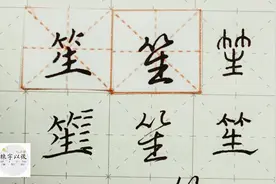 笙 笙 笙
笙 笙 笙